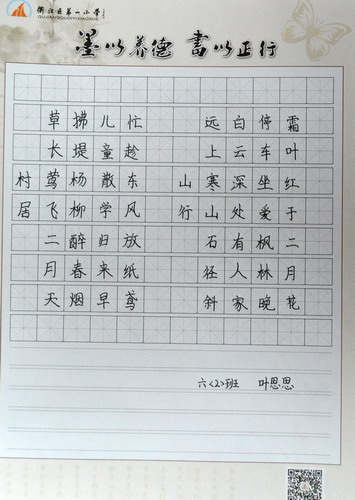 衢江区第一小学
墨以养德 書以正行
村居
草长莺飞二月天
拂堤杨柳醉春烟
儿童散学归来早
忙趁东风放纸鸢
山行
远上寒山石径斜
白云深处有人家
停车坐爱枫林晚
霜叶红于二月花
六〈2〉班 叶思思